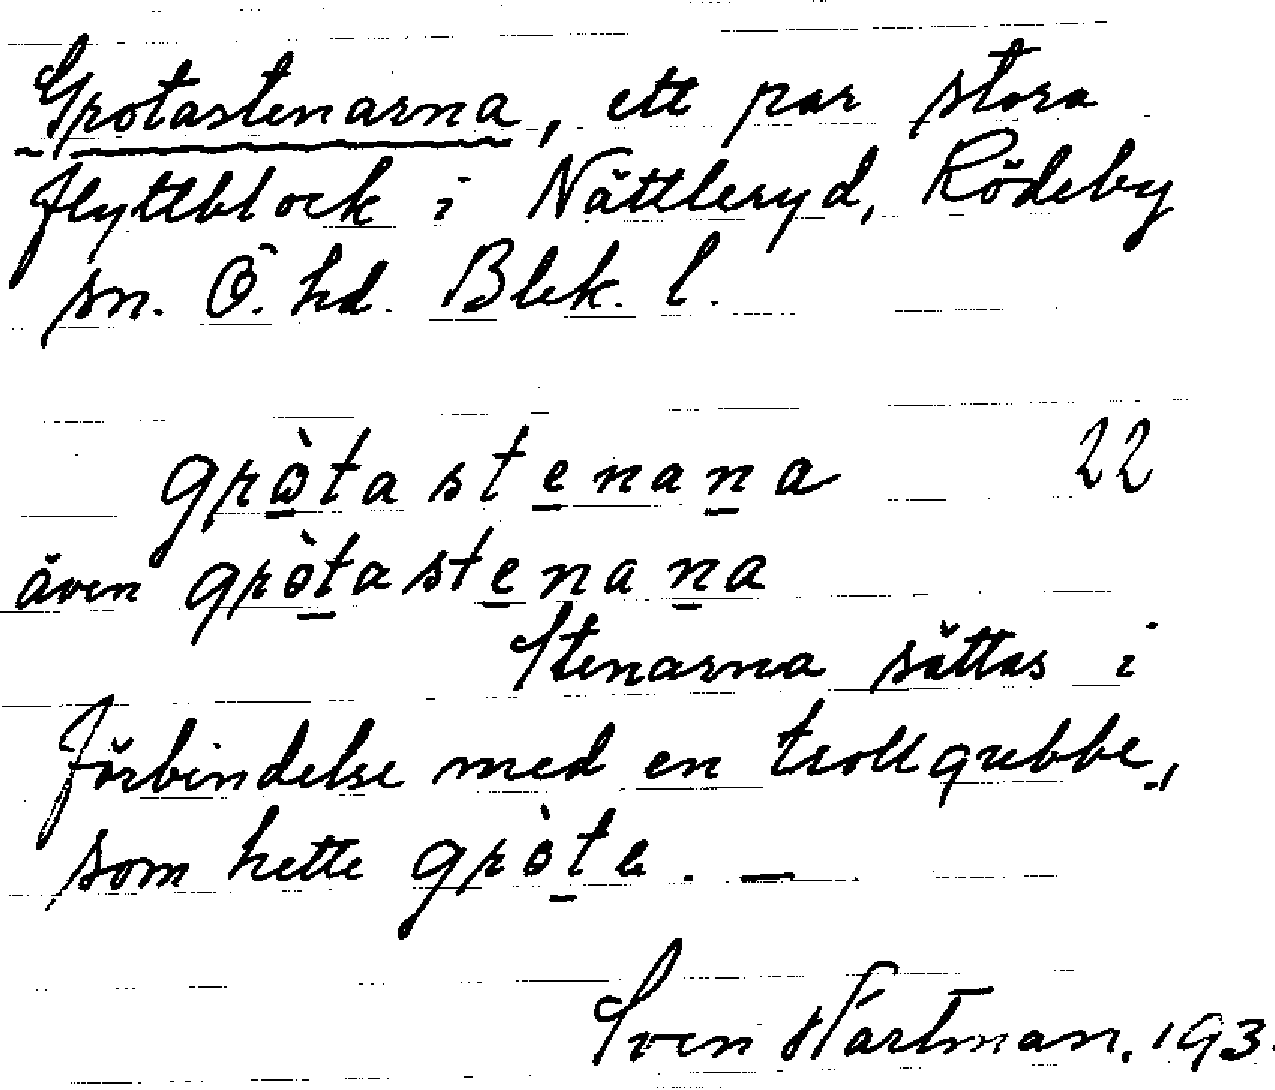 Grotastenarna, ett par stora
flyttblock i Nättleryd, Rödeby
sn. Ö. hd. Blek. l.
grò̱tasṯe̱nana 22
även gròṯaste̱naṉa
Stenarna sättas i
förbindelse med en trollgubbe,
som hette gròṯa. —
Sven Hartman. 193.